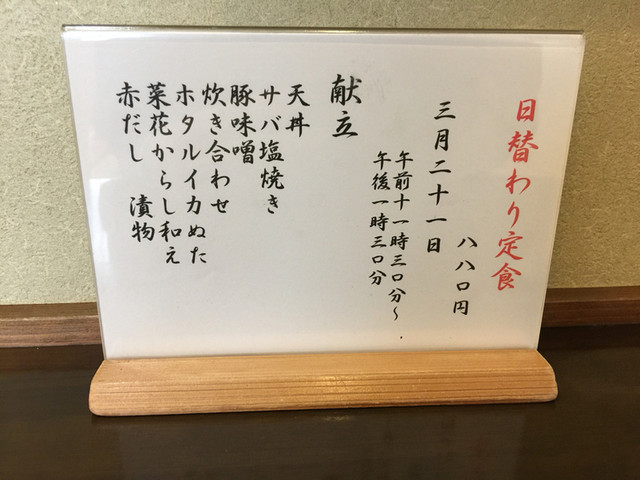 日替わり定食
八八〇円
三月二十一日
午前十一時三〇分～
午後一時三〇分
献立
天丼
サバ塩焼き
豚味噌
炊き合わせ
ホタルイカぬた
菜花からし和え
赤だし　漬物